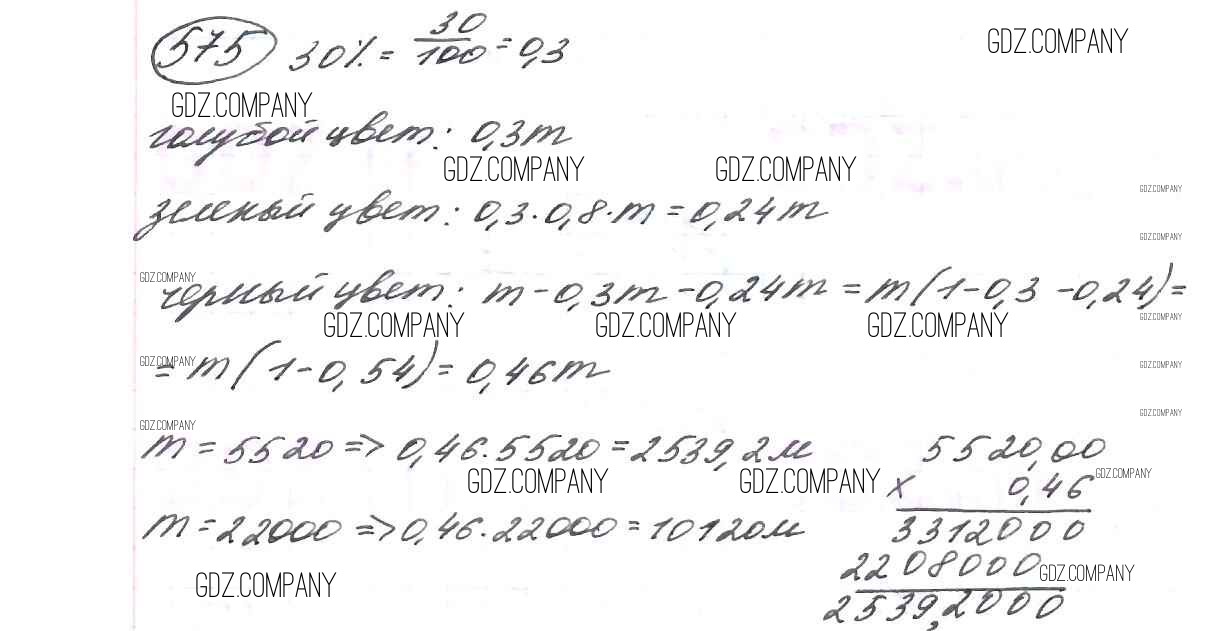 575 30% = 30/100 = 0,3
GDZ.COMPANY
GDZ.COMPANY
голубой цвет: 0,3m
GDZ.COMPANY GDZ.COMPANY
GDZ.COMPANY
зеленый цвет: 0,3·0,8·m = 0,24m
GDZ.COMPANY
GDZ.COMPANY
черный цвет: m - 0,3m - 0,24m = m(1-0,3-0,24) =
GDZ.COMPANY GDZ.COMPANY GDZ.COMPANY
GDZ.COMPANY
GDZ.COMPANY
= m(1-0,54) = 0,46m
GDZ.COMPANY
GDZ.COMPANY
GDZ.COMPANY
m = 5520 => 0,46·5520 = 2539,2м
5520,00
GDZ.COMPANY GDZ.COMPANY
GDZ.COMPANY
x 0,46
m = 22000 => 0,46·22000 = 10120м
3312000
2208000
GDZ.COMPANY
GDZ.COMPANY
2539,2000